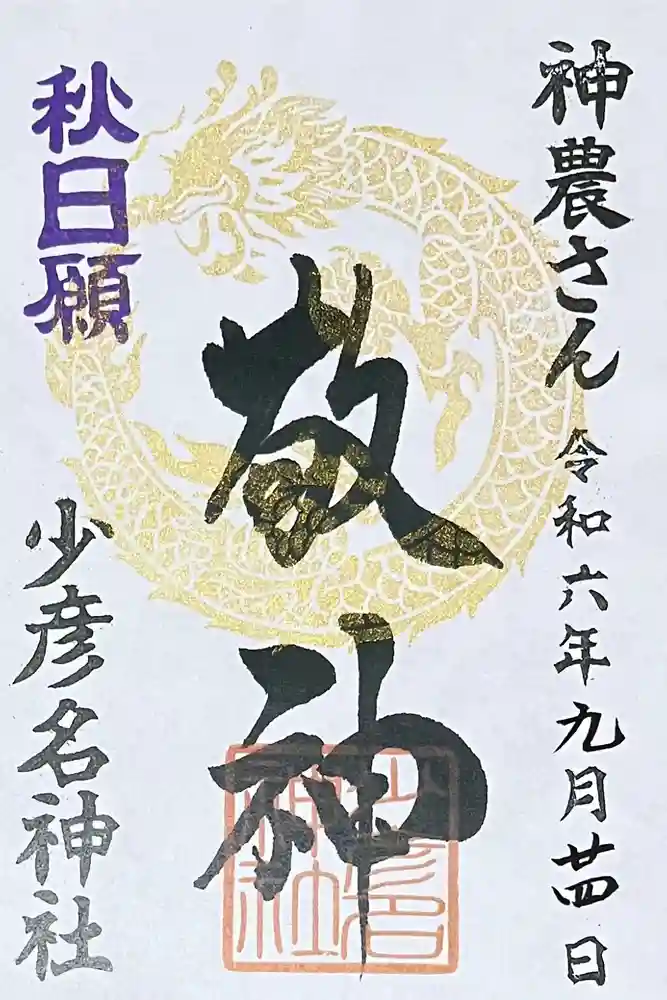 神農さん 令和六年九月廿四日
敬神
秋日願
少彦名神社
少彦名
神社